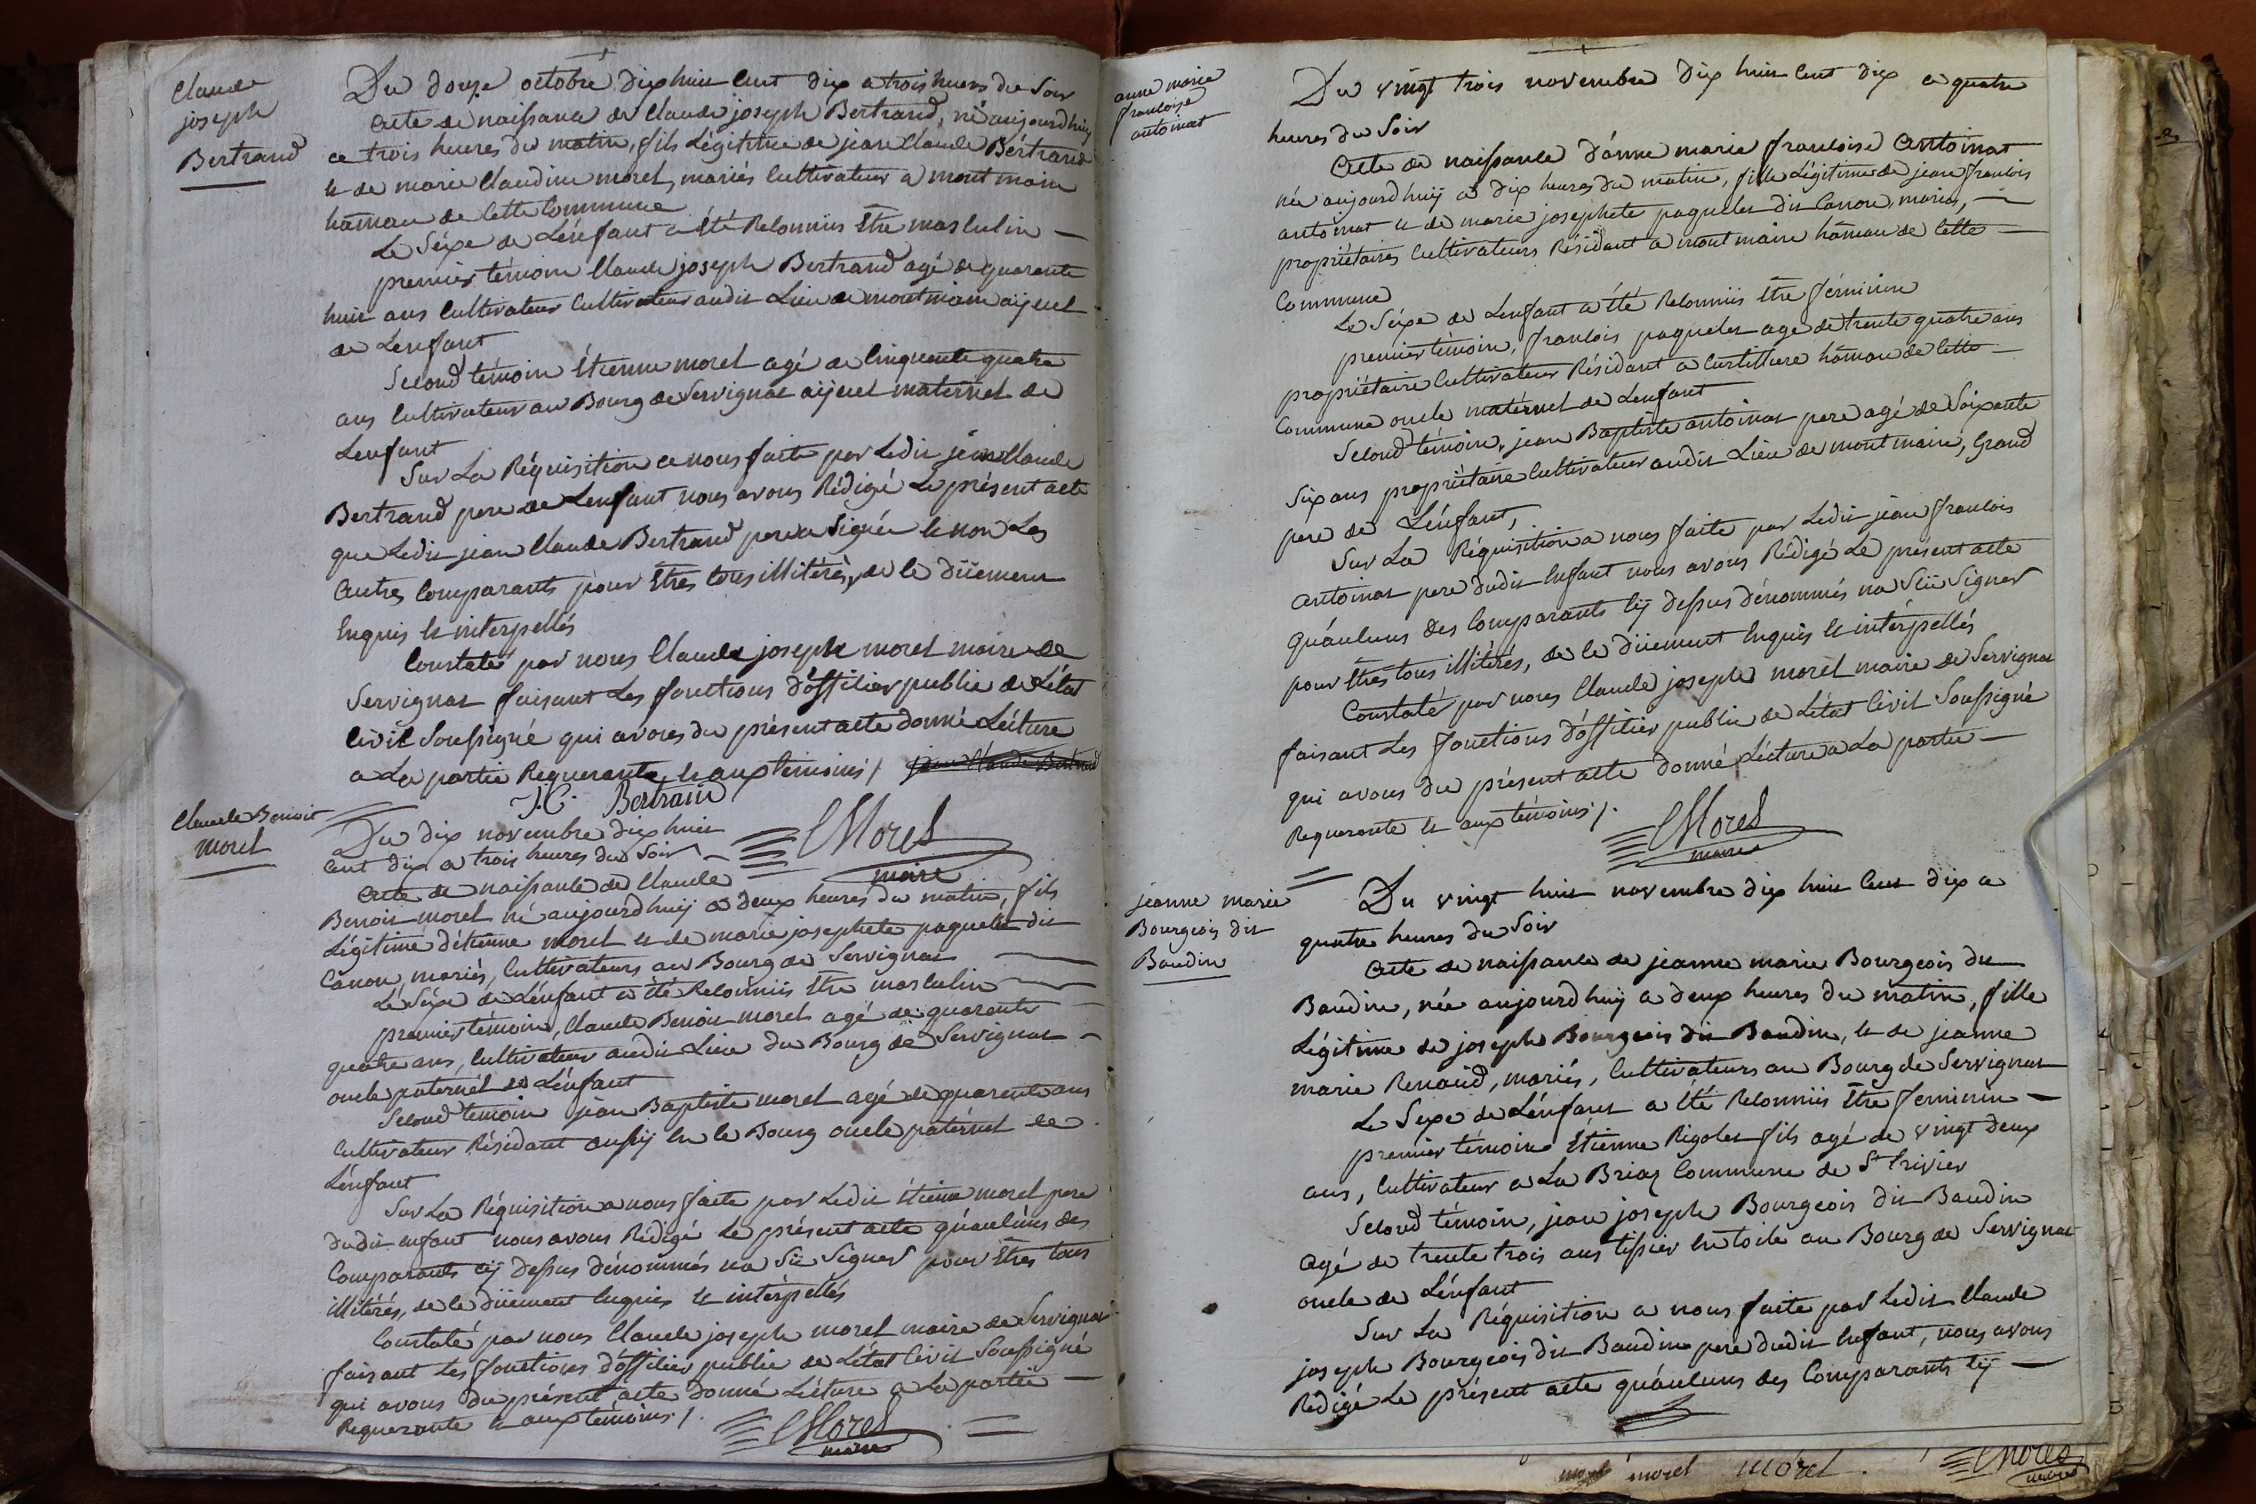 Claude
joseph
Bertrand
Du douze octobre dix huit cent dix a trois heures du Soir
acte de naissance de Claude joseph Bertrand, né aujourd'huy
a trois heures du matin, fils Légitime de jean Claude Bertrand
et de marie Claudine morel, mariés Cultivateur a montmain
hâmau de Cette Commune
Le Séxe de L'énfant a été Reconnüs Etre masculin
premier témoin Claude joseph Bertrand agé de quarente
huit ans Cultivateur Cultivateur audit Lieu de montmain aÿeul
de L'enfant
Second témoin Étienne morel agé de Cinquente quatre
ans Cultivateur au Bourg de Servignat aÿeul matérnel de
L'enfant
Sur La Réquisition a nous faite par Ledit jean Claude
Bertrand pere de L'enfant nous avons Rédigé Le présent acte
que Ledit jean Claude Bertrand pere a Signée et non Les
autres Comparants pour Etres tous illitérés, de Ce düement
Enquis et intérpellés
Constaté par nous Claude joseph morel maire de
Servignat faisant Les fonctions d'officier public de L'état
Civil Soussigné qui avons du présent acte donné Lécture
a La partie Requerante et aux témoins /. jean Claude Bertrand
J. C. Bertrand
CMorel
maire
Claude Benoit
morel
Du dix novembre dix huit
Cent dix a trois heures du Soir
acte de naissance de Claude
Benoit morel né aujourd'huij a deux heures du matin, fils
Légitime d'étienne morel et de marie josephete paquelet dit
Canon, mariés, Cultivateurs au Bourg de Servignat
Le Séxe de L'énfant a été Reconnüs Etre masculin
premier témoin, Claude Benoit morel agé de quarente
quatre ans, Cultivateur audit Lieu du Bourg de Servignat
oncle patérnél de L'énfant
Second témoin jean Baptiste morel agé de quarente ans
Cultivateur Résidant aussij en Ce Bourg oncle patérnel de
L'énfant
Sur La Réquisition a nous faite par Ledit étienne morel pere
dudit enfant nous avons Rédigé Le présent acte qu'aucuns des
Comparants cij dessus dénommés n'a Sü Signer pour Etres tous
illitérés, de Ce düement Enquis et intérpellés
Constaté par nous Claude joseph morel maire de Servignat
faisant Les fonctions d'officier public de L'état Civil Soussigné
qui avons du présent acte donné Lécture a La partie
Requerante et aux témoins /.
CMorel
maire
anne marie
francoise
antoinat
Du vingt trois novembre dix huit Cent dix a quatre
heures du Soir
acte de naissance d'anne marie francoise antoinat
née aujourd'huij a dix heures du matin, fille Légitime de jean francois
antoinat et de marie josephete paquelet dit Canon, mariés,
propriétaires Cultivateurs Résidant a montmain hâmau de Cette
Commune
Le Séxe de L'enfant a été Reconnüs Etre féminin
premier témoin, francois paquelet agé de trente quatre ans
propriétaire Cultivateur Résidant a Curtillure hâmau de Cette
Commune oncle matérnel de L'enfant
Second témoin, jean Baptiste antoinat pere agé de Soixante
Six ans propriétaire Cultivateur audit Lieu de montmain, Grand
pere de L'énfant,
Sur La Réquisition a nous faite par Ledit jean francois
antoinat pere dudit Enfant nous avons Rédigé Le présent acte
qu'aucuns des Comparants Cij dessus dénommés n'a Sü Signer
pour Etres tous illitérés, de Ce düement Enquis et intérpellés
Constaté par nous Claude joseph morel maire de Servignat
faisant Les fonctions d'officier public de L'état Civil Soussigné
qui avons du présent acte donné Lécture a La partie
Requerante et aux témoins /.
CMorel
maire
jeanne marie
Bourgeois dit
Baudin
Du vingt huit novembre dix huit Cent dix a
quatre heures du Soir
acte de naissance de jeanne marie Bourgeois dit
Baudin, née aujourd'huij a deux heures du matin, fille
Légitime de joseph Bourgeois dit Baudin, et de jeanne
marie Renaud, mariés, Cultivateurs au Bourg de Servignat
Le Sexe de L'énfant a été Reconnüs Etre feminin
premier témoin Étienne Rigolet fils agé de vingt deux
ans, Cultivateur a La Briaz Commune de St. trivier
Second témoin, jean joseph Bourgeois dit Baudin
agé de trente trois ans tissier en toile au Bourg de Servignat
oncle de L'énfant
Sur La Réquisition a nous faite par Ledit Claude
joseph Bourgeois dit Baudin pere dudit Enfant, nous avons
Rédigé Le présent acte qu'aucuns des Comparants Cij
morel morel
CMorel
maire